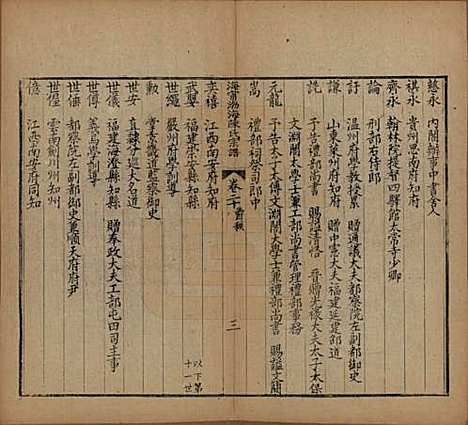 慈永　內閣辦事中書舍人
祺永　貴州思南府知府
齊永　翰林院提督四驛館太常寺少卿
論　刑部右侍郎
訏　溫州府學教授累　贈通議大夫都察院左副都御史
謙　山東萊州府知府　贈中憲大夫福建延建邵道
詵　予告禮部尚書　賜諡清恪　晉贈光祿大夫太子太保
文淵閣大學士兼工部尚書管理禮部事務
元龍　予告太子太傅文淵閣大學士兼禮部尚書　賜諡文簡
嵩　禮部祠祭司郎中
海甯渤海陳氏宗譜　卷二十　爵秩　三
奕禧　江西南安府知府
武嬰　知縣
世繩　嚴州府學訓導　以下第十一世
勳　掌京畿道監察御史
世安　直隸大名道
世儀　福建海澄縣知縣　贈奉政大夫工部屯田司主事
世傳　義烏學訓導
世倌　都察院左副都御史兼順天府府尹
世 　雲南劍川州知州
僖　江西南安府同知